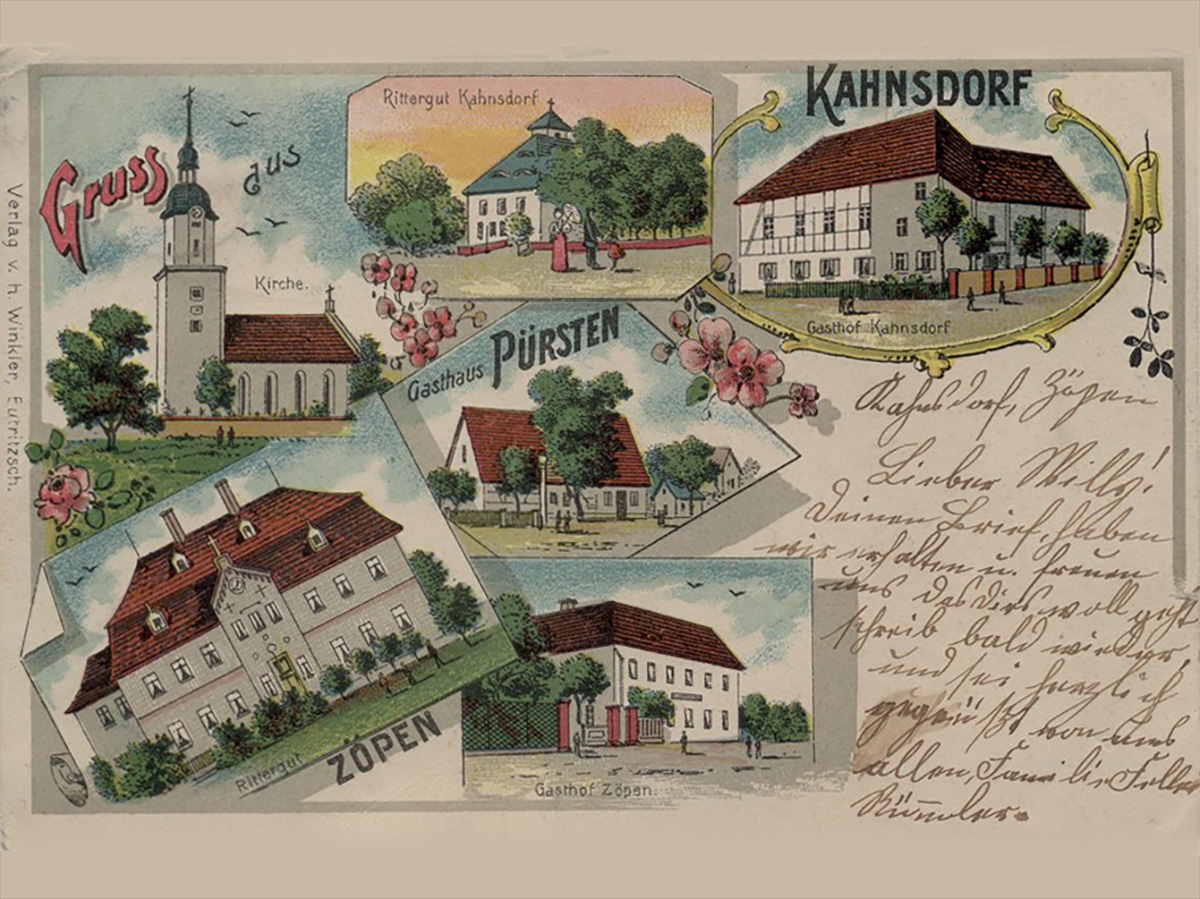 Gruss aus
KAHNSDORF
Rittergut Kahnsdorf
Kirche.
Gasthof Kahnsdorf
Gasthaus PÜRSTEN
Rittergut ZÖPEN
Gasthof Zöpen.
Verlag v. H. Winkler, Eutritzsch.
Kahnsdorf, Zöpen
Lieber Willy!
Deinen Brief, haben
wir erhalten u. freuen
uns das dirs woll geht
schreib bald wieder
und sei herzlich
gegrüßt von uns
allen, Familie